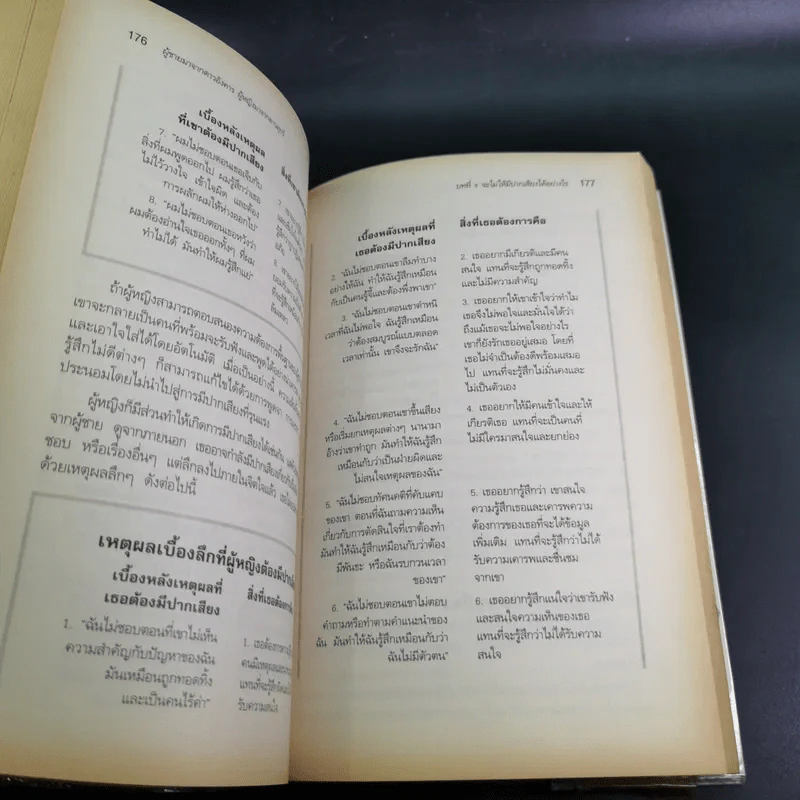 176
ผู้ชายมาจากดาวอังคาร ผู้หญิงมาจากดาวศุกร์
เบื้องหลังเหตุผล
ที่เขาต้องมีปากเสียง
7. "ผมไม่ชอบตอนเธอเจ็บกับ
สิ่งที่ผมพูดออกไป ผมรู้สึกว่าเธอ
ไม่ไว้วางใจ เข้าใจผิด และต้อง
การผลักผมให้ห่างออกไป"
8. "ผมไม่ชอบตอนเธอหวังว่า
ผมต้องอ่านใจเธอออกทั้งๆ ที่ผม
ทำไม่ได้ มันทำให้ผมรู้สึกแย่"
ถ้าผู้หญิงสามารถตอบสนองความต้องการ
เขาจะกลายเป็นคนที่พร้อมจะรับฟังและพูดได้อย่าง
และเอาใจใส่ได้โดยอัตโนมัติ เมื่อเป็นอย่างนี้
รู้สึกไม่ดีต่างๆ ก็สามารถแก้ไขได้ด้วยการพูดจา
ประนอมโดยไม่นำไปสู่การมีปากเสียงที่รุนแรง
ผู้หญิงก็มีส่วนทำให้เกิดการมีปากเสียงได้เช่นกัน
จากผู้ชาย ดูจากภายนอก เธออาจกำลังมีปากเสียง
ชอบ หรือเรื่องอื่นๆ แต่ลึกลงไปภายในจิตใจแล้ว
ด้วยเหตุผลลึกๆ ดังต่อไปนี้
เหตุผลเบื้องลึกที่ผู้หญิงต้องมีปาก
เบื้องหลังเหตุผลที่
เธอต้องมีปากเสียง
สิ่งที่เธอต้องการ
1. "ฉันไม่ชอบตอนที่เขาไม่เห็น
ความสำคัญกับปัญหาของฉัน
มันเหมือนถูกทอดทิ้ง
และเป็นคนไร้ค่า"
1. เธอต้องการ
คนมีเหตุผล
แทนที่จะรู้สึก
รับความสนใจ
บทที่ ๙ จะไม่ให้มีปากเสียงได้อย่างไร 177
เบื้องหลังเหตุผลที่
เธอต้องมีปากเสียง
สิ่งที่เธอต้องการคือ
2. "ฉันไม่ชอบตอนเขาลืมทำบาง
อย่างให้ฉัน ทำให้ฉันรู้สึกเหมือน
กับเป็นคนจู้จี้และต้องพึ่งพาเขา"
2. เธออยากมีเกียรติและมีคน
สนใจ แทนที่จะรู้สึกถูกทอดทิ้ง
และไม่มีความสำคัญ
3. "ฉันไม่ชอบตอนเขาตำหนิ
เวลาที่ฉันไม่พอใจ ฉันรู้สึกเหมือน
ว่าต้องสมบูรณ์แบบตลอด
เวลาเท่านั้น เขาจึงจะรักฉัน"
3. เธออยากให้เขาเข้าใจว่าทำไม
เธอจึงไม่พอใจและมั่นใจได้ว่า
ถึงแม้เธอจะไม่พอใจอย่างไร
เขาก็ยังรักเธออยู่เสมอ โดยที่
เธอไม่จำเป็นต้องดีพร้อมเสมอ
ไป แทนที่จะรู้สึกไม่มั่นคงและ
ไม่เป็นตัวเอง
4. "ฉันไม่ชอบตอนเขาขึ้นเสียง
หรือเริ่มยกเหตุผลต่างๆ นานามา
อ้างว่าเขาทำถูก มันทำให้ฉันรู้สึก
เหมือนกับว่าเป็นฝ่ายผิดและ
ไม่สนใจเหตุผลของฉัน"
4. เธออยากให้มีคนเข้าใจและให้
เกียรติเธอ แทนที่จะเป็นคนที่
ไม่มีใครมาสนใจและยกย่อง
5. "ฉันไม่ชอบทัศนคติที่คับแคบ
ของเขา ตอนที่ฉันถามความเห็น
เกี่ยวกับการตัดสินใจที่เราต้องทำ
มันทำให้ฉันรู้สึกเหมือนกับว่าต้อง
มีพันธะ หรือฉันรบกวนเวลา
ของเขา"
5. เธออยากรู้สึกว่า เขาสนใจ
ความรู้สึกเธอและเคารพความ
ต้องการของเธอที่จะได้ข้อมูล
เพิ่มเติม แทนที่จะรู้สึกว่าไม่ได้
รับความเคารพและชื่นชม
จากเขา
6. "ฉันไม่ชอบตอนเขาไม่ตอบ
คำถามหรือทำตามคำแนะนำของ
ฉัน มันทำให้ฉันรู้สึกเหมือนกับว่า
ฉันไม่มีตัวตน"
6. เธออยากรู้สึกแน่ใจว่าเขารับฟัง
และสนใจความเห็นของเธอ
แทนที่จะรู้สึกว่าไม่ได้รับความ
สนใจ